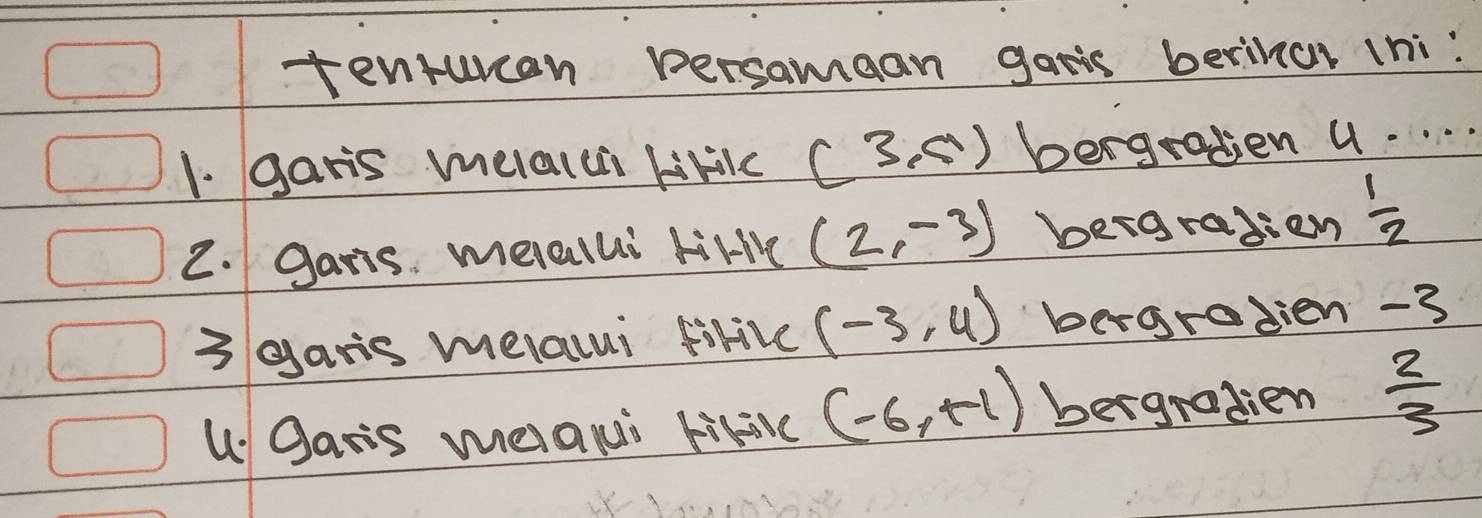 tentukan persamaan garis berikut ini:
1. garis melalui titik (3,5) bergradien 4.....
2. garis. melalui titik (2,-3) bergradien 1/2
3 garis melalui titik (-3,4) bergradien -3
4. Garis melalui titik (-6,+1) bergradien 2/3